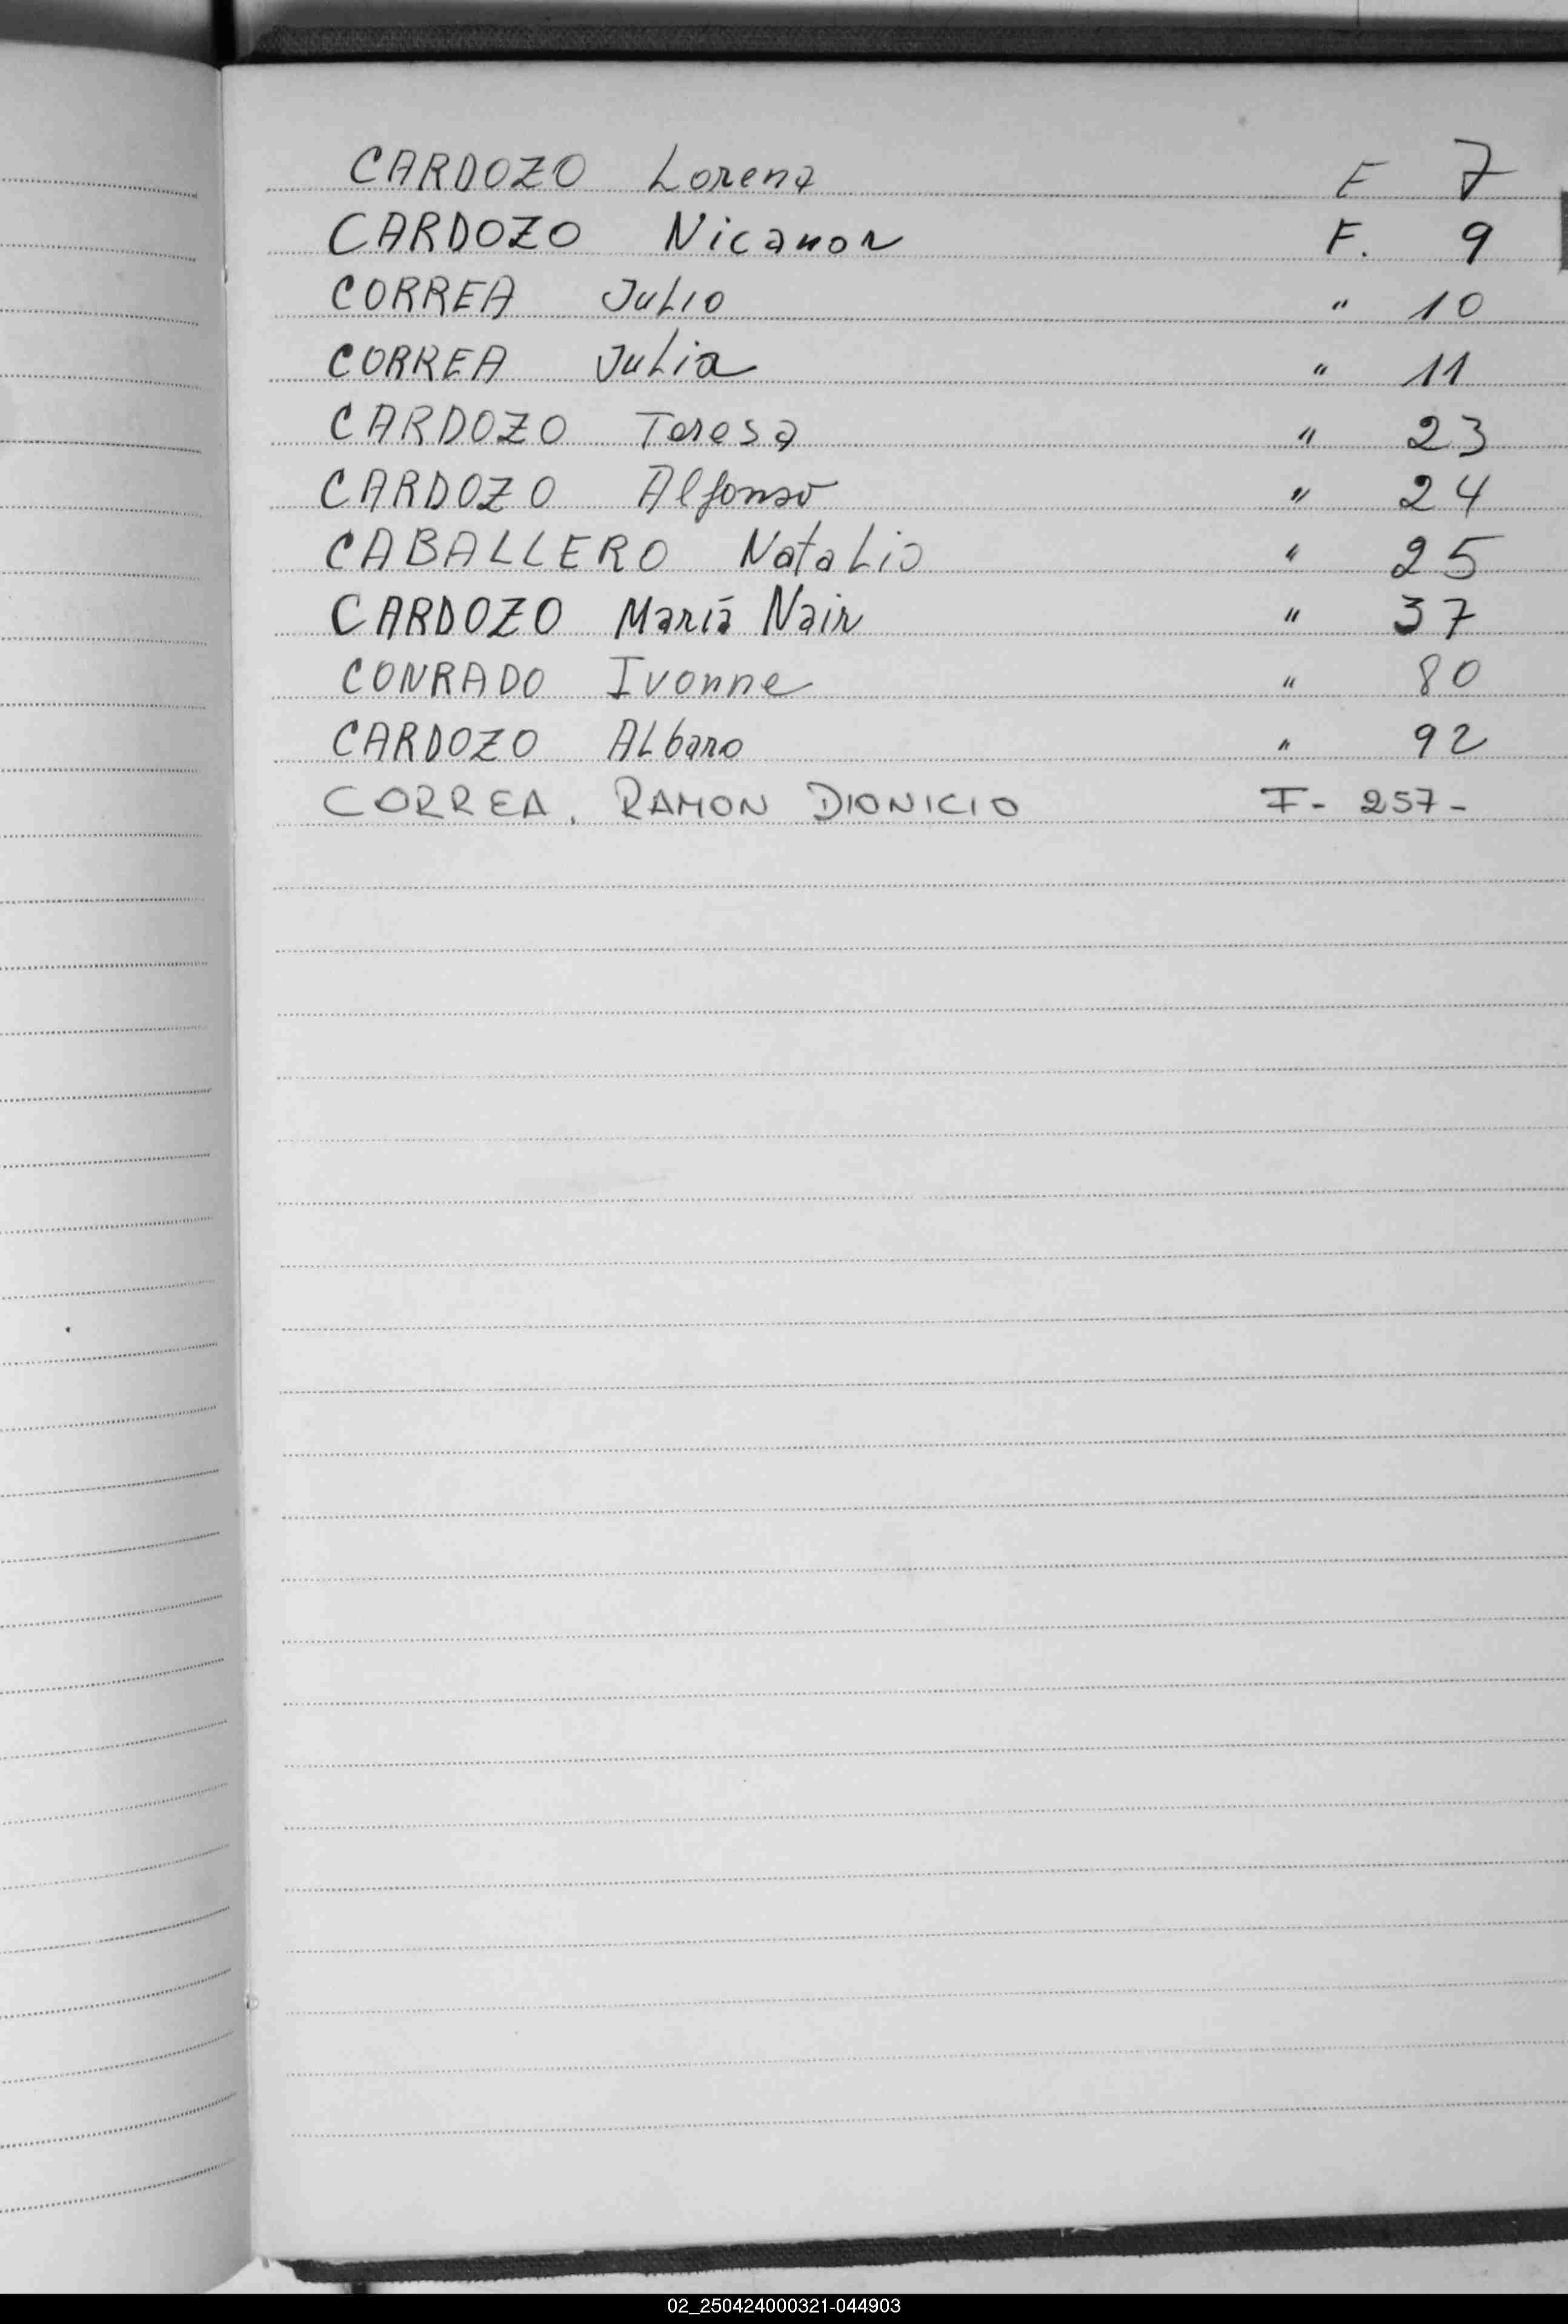 CARDOZO Lorena F 7
CARDOZO Nicanor F. 9
CORREA Julio " 10
CORREA Julia " 11
CARDOZO Teresa " 23
CARDOZO Alfonso " 24
CABALLERO Natalio " 25
CARDOZO Mariá Nair " 37
CONRADO Ivonne " 80
CARDOZO Albaro " 92
CORREA, RAMON DIONICIO F- 257-
02_250424000321-044903